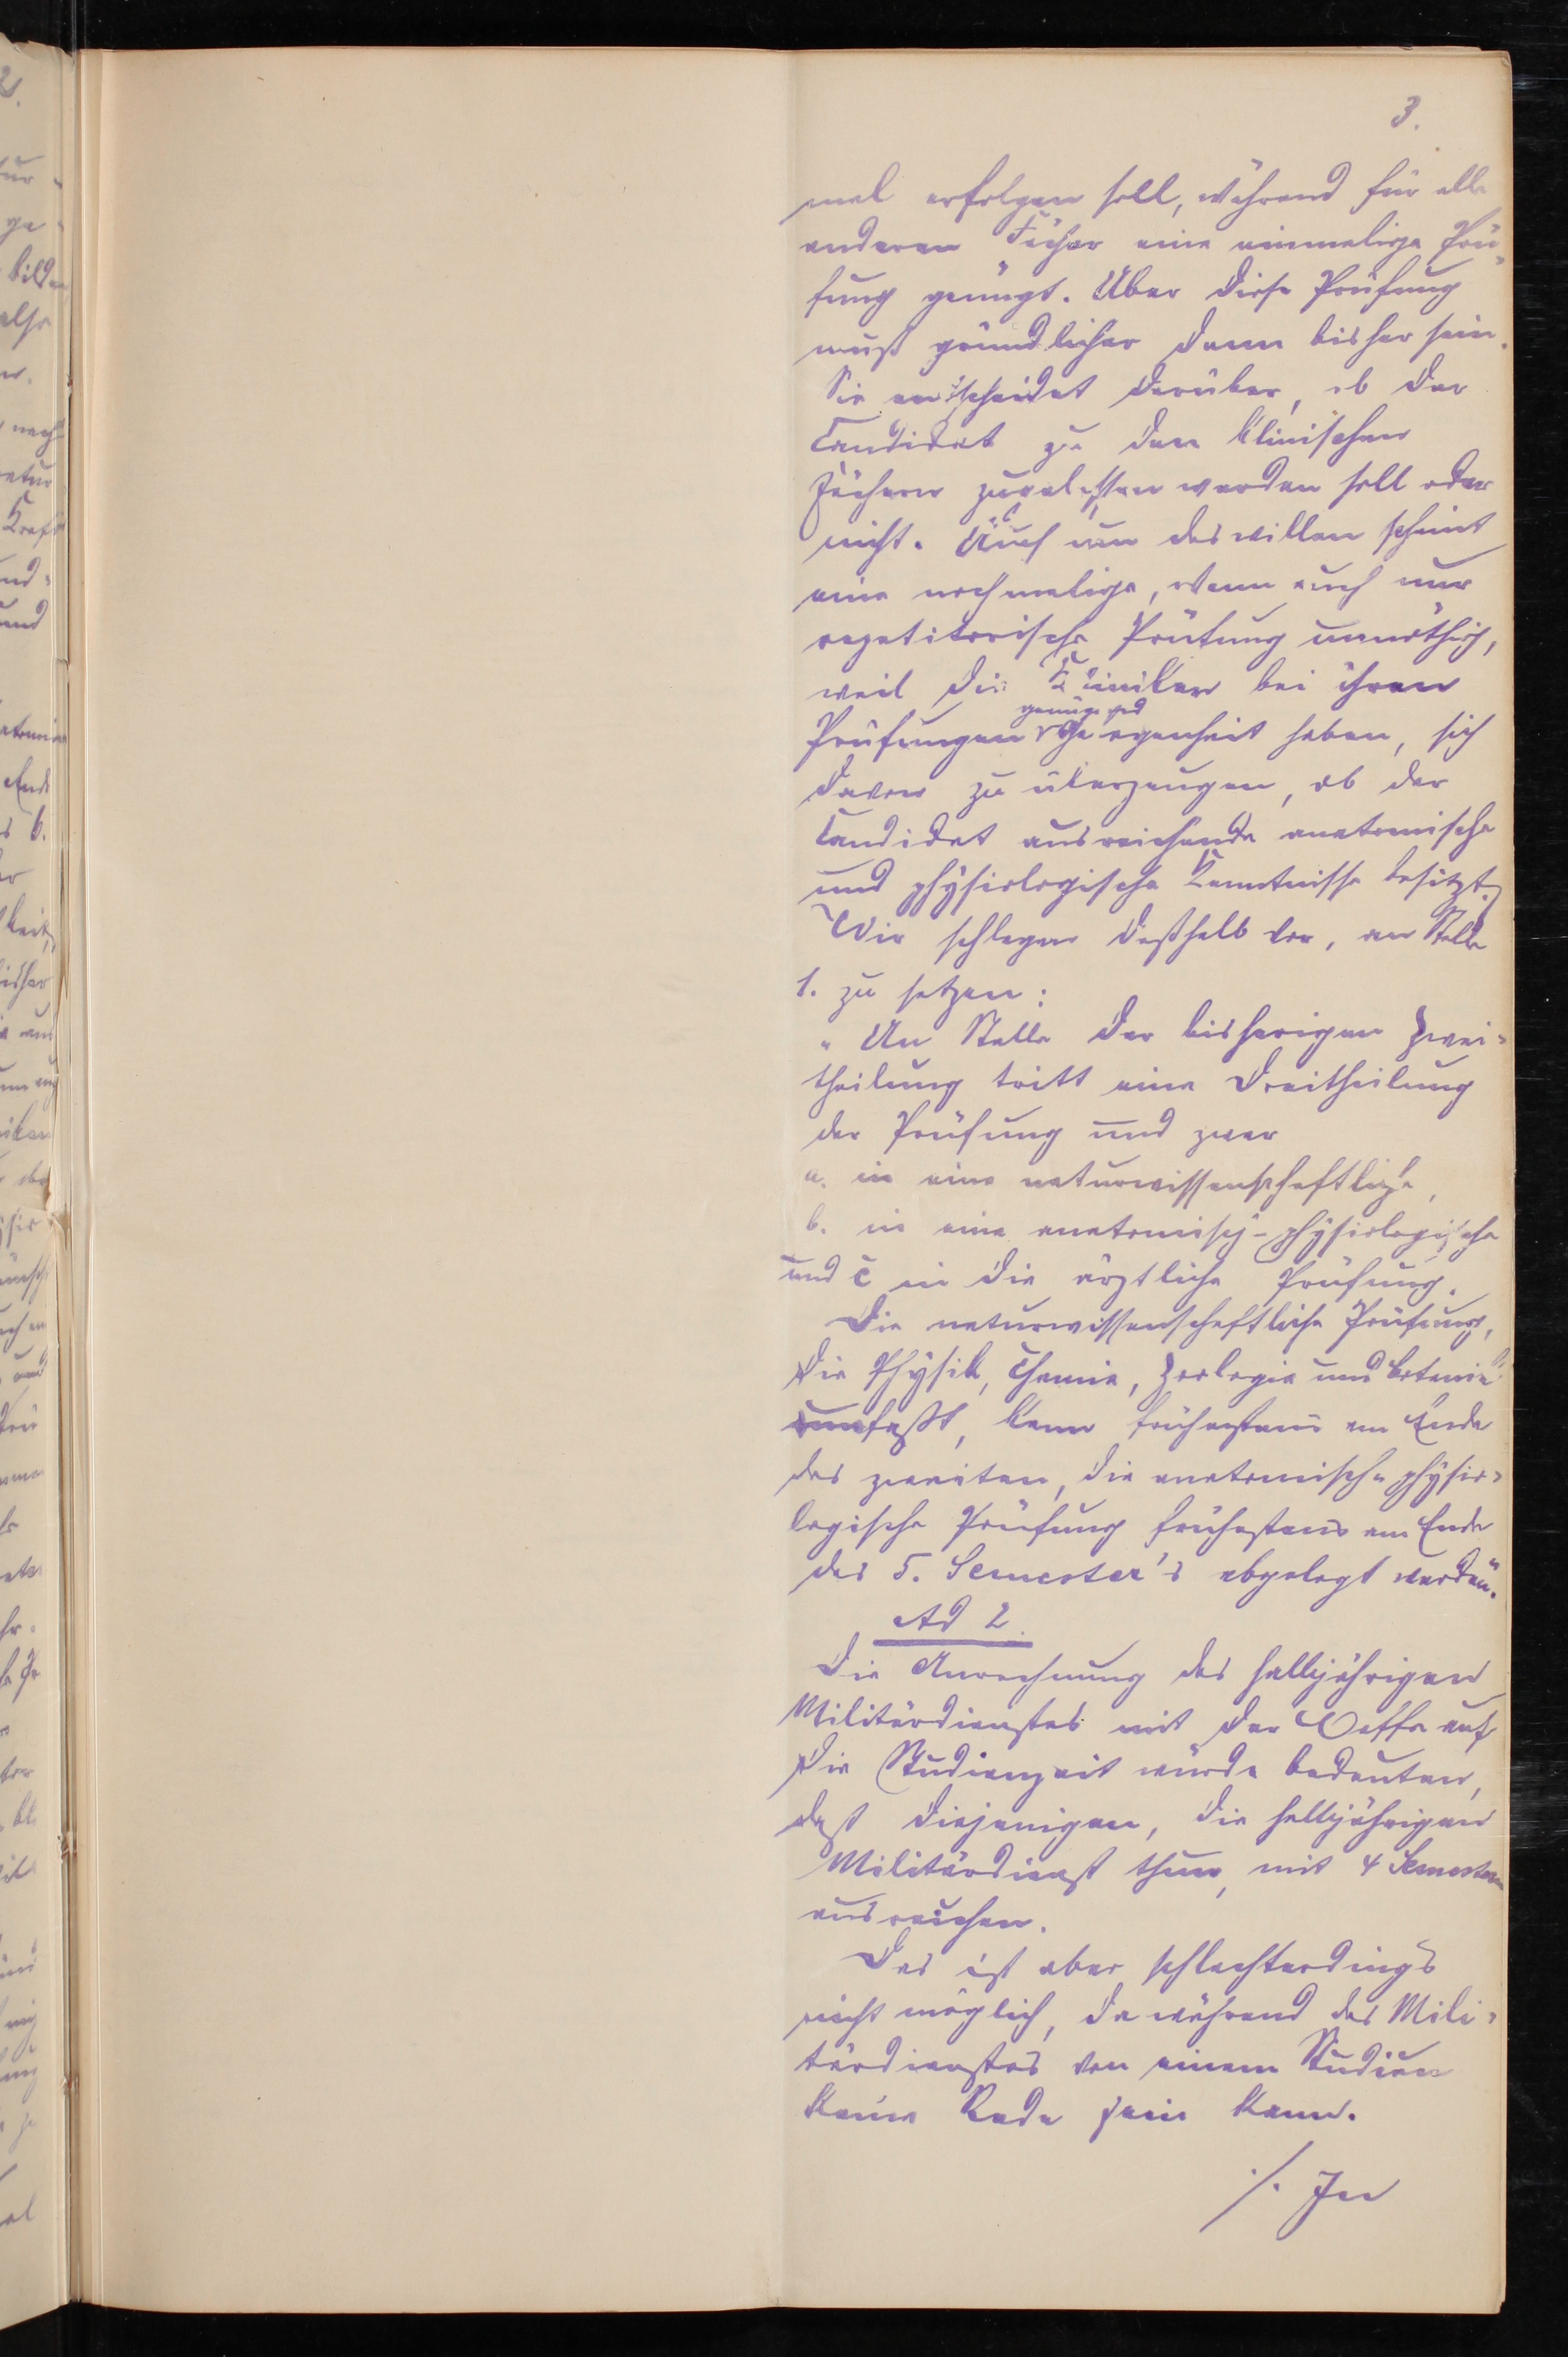 3.
mal erfolgen soll, während für alle
anderen Fächer eine einmalige Prü-
fung genügt. Aber diese Prüfung
muß gründlicher denn bisher sein.
Sie entscheidet darüber, ob der
Candidat zu den klinischen
Fächern zugelassen werden soll oder
nicht. Auch um deswillen scheint
eine nochmalige, wenn auch nur
repetitorische Prüfung unnöthig,
weil die Kliniker bei ihren
genügend
Prüfungen Gelegenheit haben, sich
davon zu überzeugen, ob der
Candidat ausreichende anatomische
und physiologische Kenntnisse besitzt.
Wir schlagen deßhalb vor, an Stelle
1. zu setzen:
„An Stelle der bisherigen Zwei-
theilung tritt eine Dreitheilung
der Prüfung und zwar
a. in eine naturwissenschaftliche,
b. in eine anatomisch-physiologische
und c in die ärztliche Prüfung.
Die naturwissenschaftliche Prüfung,
die Physik, Chemie, Zoologie und Botanik
umfaßt, kann frühestens am Ende
des zweiten, die anatomisch-physio-
logische Prüfung frühestens am Ende
des 5. Semester's abgelegt werden."
Ad 2.
Die Anrechnung des halbjährigen
Militärdienstes mit der Waffe auf
die Studienzeit würde bedeuten,
daß diejenigen, die halbjährigen
Militärdienst thun, mit 4 Semestern
ausreichen.
Das ist aber schlechterdings
nicht möglich, da während des Mili-
tärdienstes von einem Studium
keine Rede sein kann.
./. In